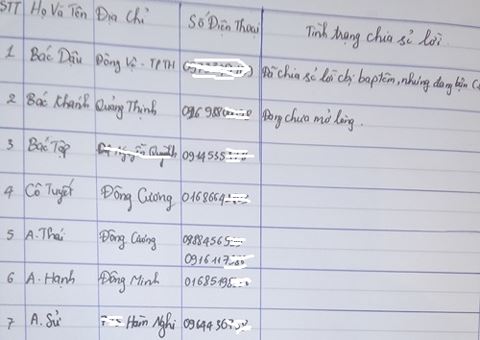 STT Họ Và Tên Địa Chỉ Số Điện Thoại Tình trạng chia sẻ lời.
1 Bác Dậu Đông Vệ - TPTH Đã chia sẻ lời chị baptêm, nhưng đang bận
2 Bác Khánh Quảng Thịnh 0916988 Đang chưa mở lòng.
3 Bác Tập 0914535
4 Cô Tuyết Đông Cương 0168664
5 A. Thái Đông Cương 09884565
0916117
6 A. Hạnh Đông Minh 01685195
7 A. Sử Hàm Nghi 09644367